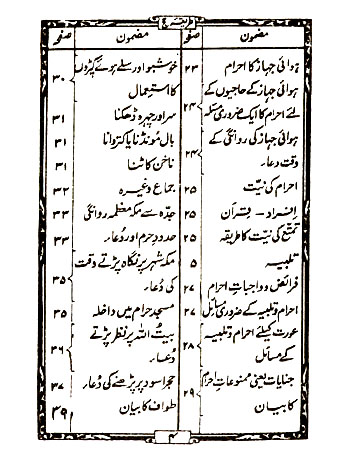 طریقہ حج
مضمون صفحہ
ہوائی جہاز کا احرام ۲۳
ہوائی جہاز کے حاجیوں کے
لئے احرام کا ایک ضروری مسئلہ ۲۴
ہوائی جہاز کی روانگی کے
وقت دعاء ۲۴
احرام کی نیت ۲۵
افراد - قران ۲۵
تمتع کی نیت کا طریقہ ۲۵
تلبیہ ۵
فرائض و واجبات احرام ۲۷
احرام و تلبیہ کے ضروری مسائل ۲۷
عورت کیلئے احرام و تلبیہ
کے مسائل ۲۸
جنایات یعنی ممنوعات احرام
کا بیان ۲۹
مضمون صفحہ
خوشبو اور سلے ہوئے کپڑوں
کا استعمال ۳۰
سر اور چہرہ ڈھکنا ۳۱
بال مونڈنا یا کتروانا ۳۱
ناخن کاٹنا ۳۱
جماع وغیرہ ۳۲
جدہ سے مکہ معظمہ روانگی ۳۳
حدود حرم اور دعاء ۳۳
مکہ شہر پر نگاہ پڑتے وقت
کی دعاء ۳۵
مسجد حرام میں داخلہ ۳۵
بیت اللہ پر نظر پڑتے
دعاء ۳۶
حجر اسود پر پڑھنے کی دعاء ۳۷
طواف کا بیان ۳۹
۴